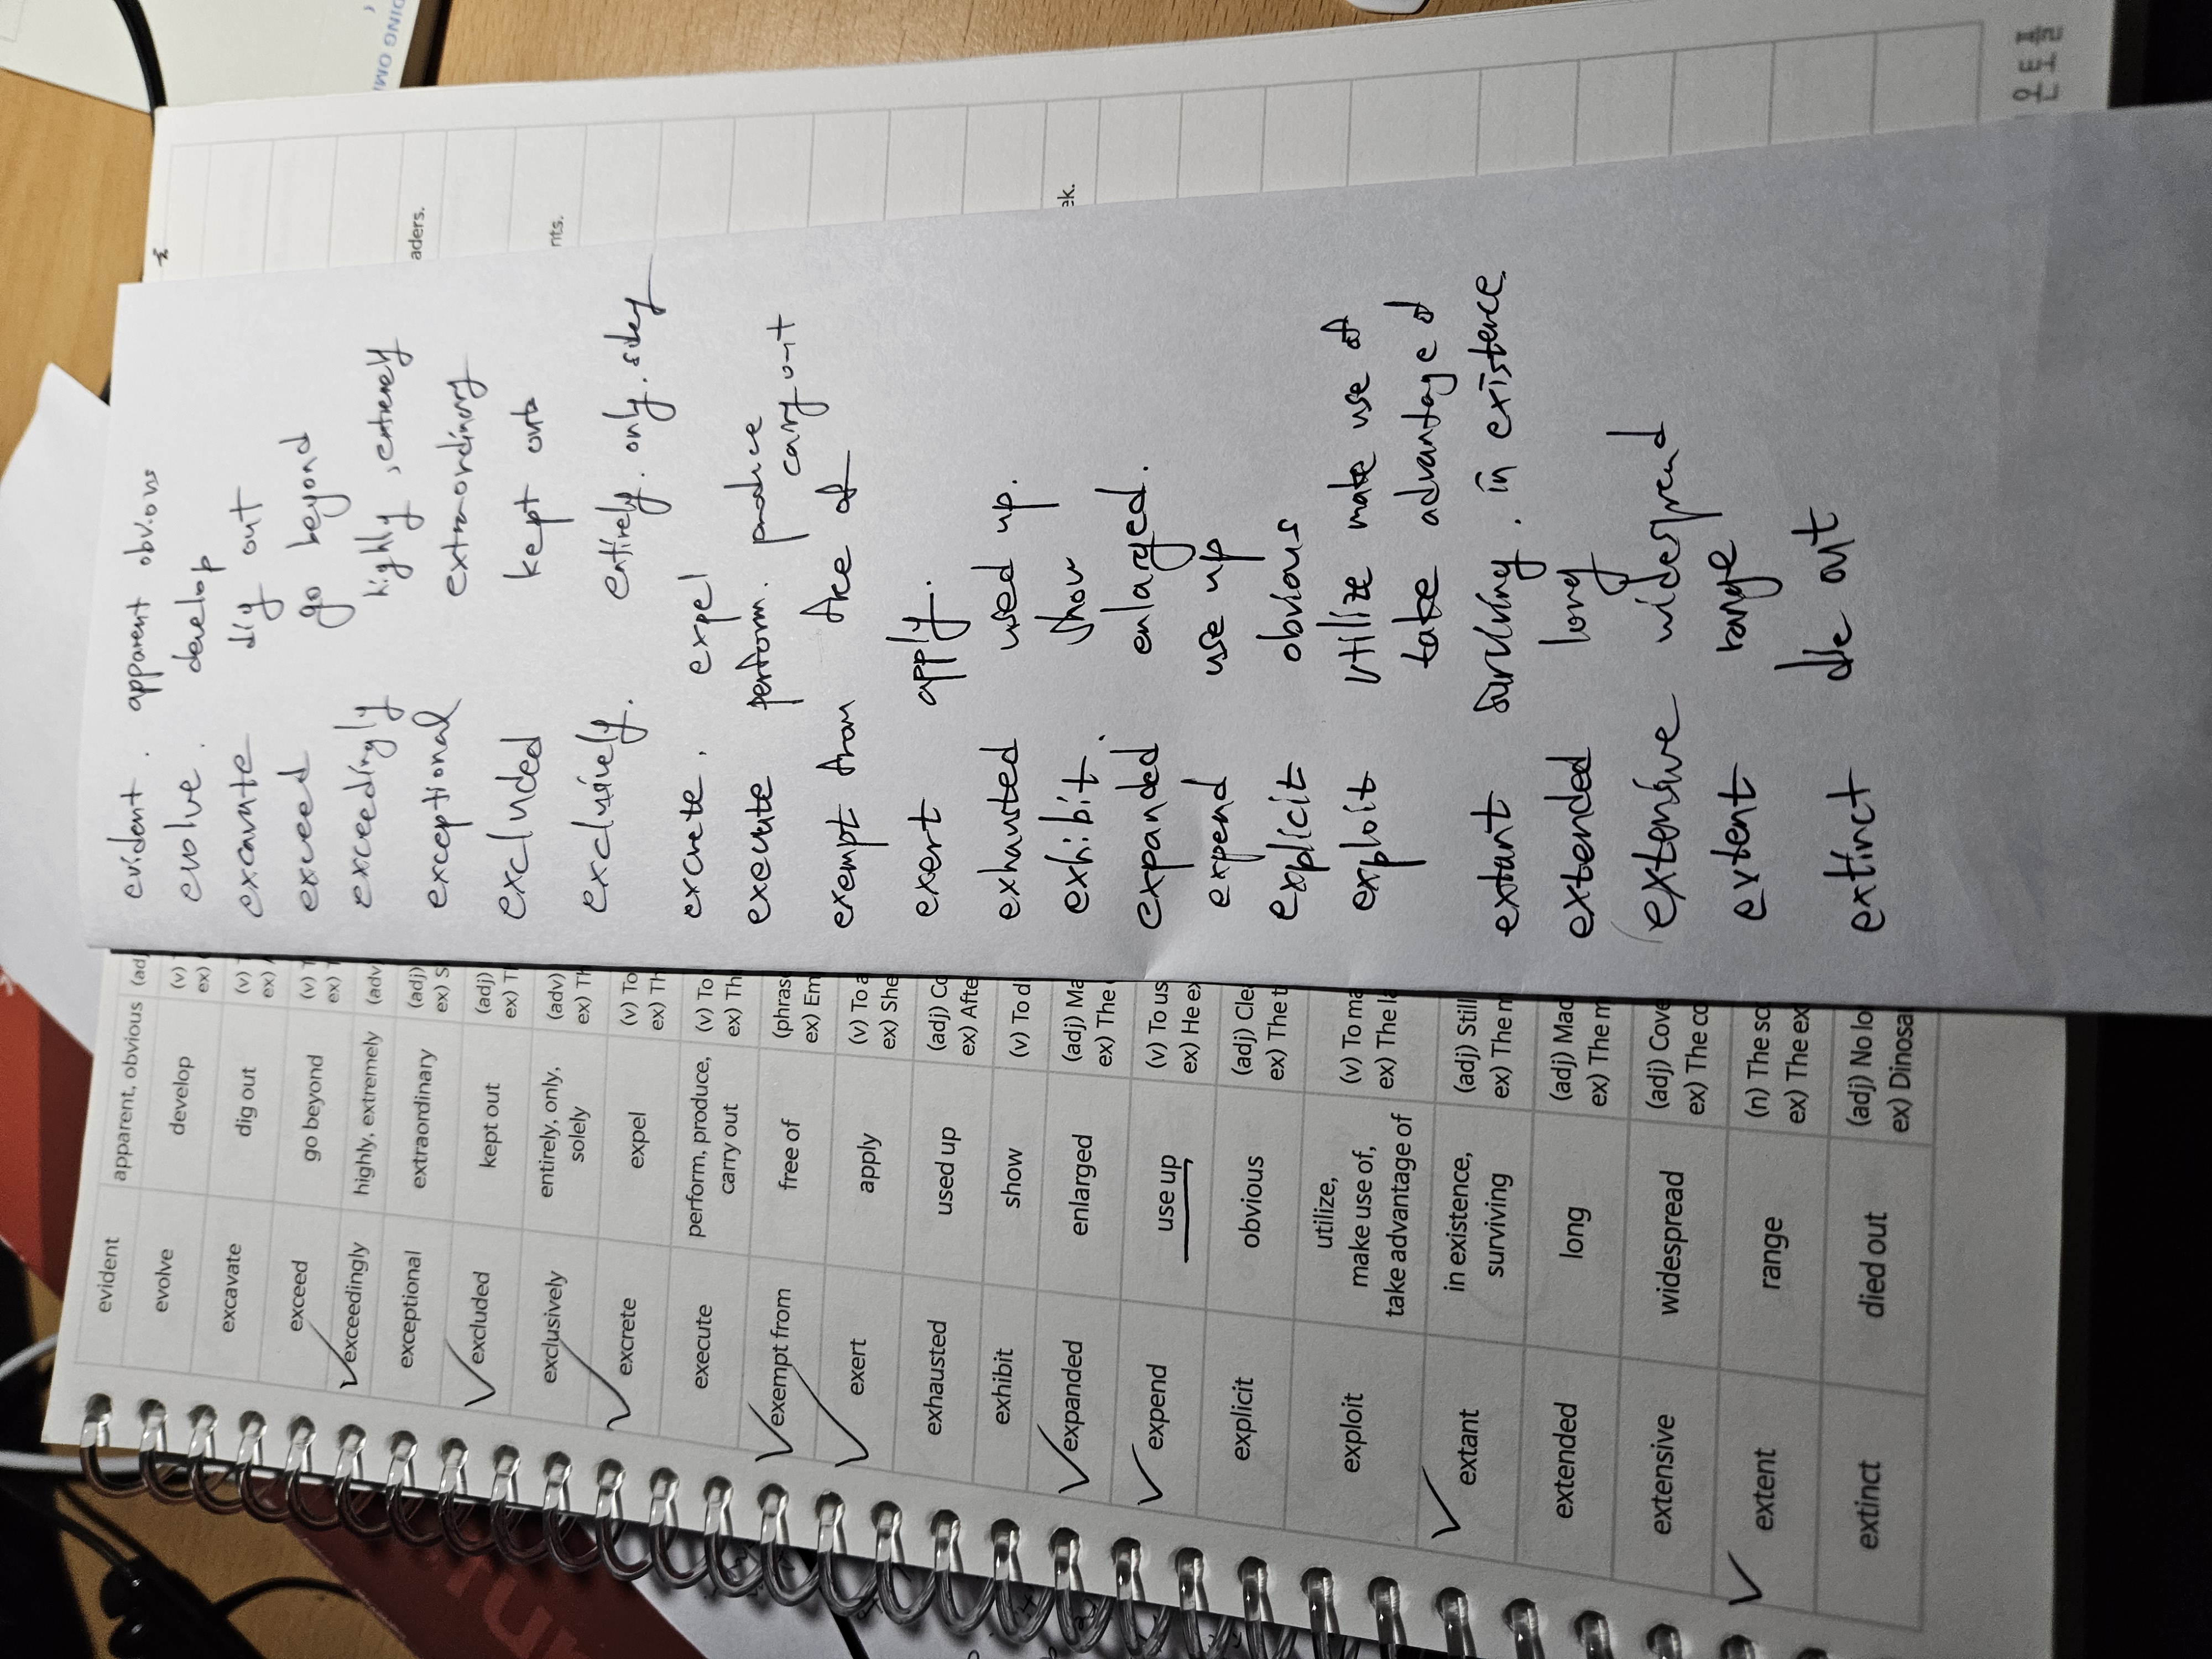 evident apparent, obvious (ad
evolve develop (v)
ex)
excavate dig out (v)
ex)
exceed go beyond (v) T
ex) T
exceedingly highly, extremely (adv)
exceptional extraordinary (adj)
ex) S
excluded kept out (adj)
ex) Th
exclusively entirely, only,
solely (adv)
ex) Th
excrete expel (v) To
ex) Th
execute perform, produce,
carry out (v) To
ex) Th
exempt from free of (phras
ex) Em
exert apply (v) To a
ex) She
exhausted used up (adj) Co
ex) Afte
exhibit show (v) To d
expanded enlarged (adj) Ma
ex) The
expend use up (v) To us
ex) He ex
explicit obvious (adj) Cle
ex) The t
exploit utilize,
make use of,
take advantage of (v) To ma
ex) The la
extant in existence,
surviving (adj) Still
ex) The m
extended long (adj) Mad
ex) The m
extensive widespread (adj) Cove
ex) The co
extent range (n) The sc
ex) The ex
extinct died out (adj) No lo
ex) Dinosa
evident. apparent obvious
evolve. develop
excavate dig out
exceed go beyond
exceedingly highly, extremely
exceptional extraordinary
excluded kept out
exclusively. entirely. only.
excrete. expel
execute perform. produce
carry out
exempt from free of
exert apply.
exhausted used up.
exhibit. show
expanded enlarged.
expend use up
explicit obvious
exploit utilize make use of
take advantage of
extant surviving. in existence.
extended long
extensive widespread
extent range
extinct die out
aders.
nts.
ek.
DING OM